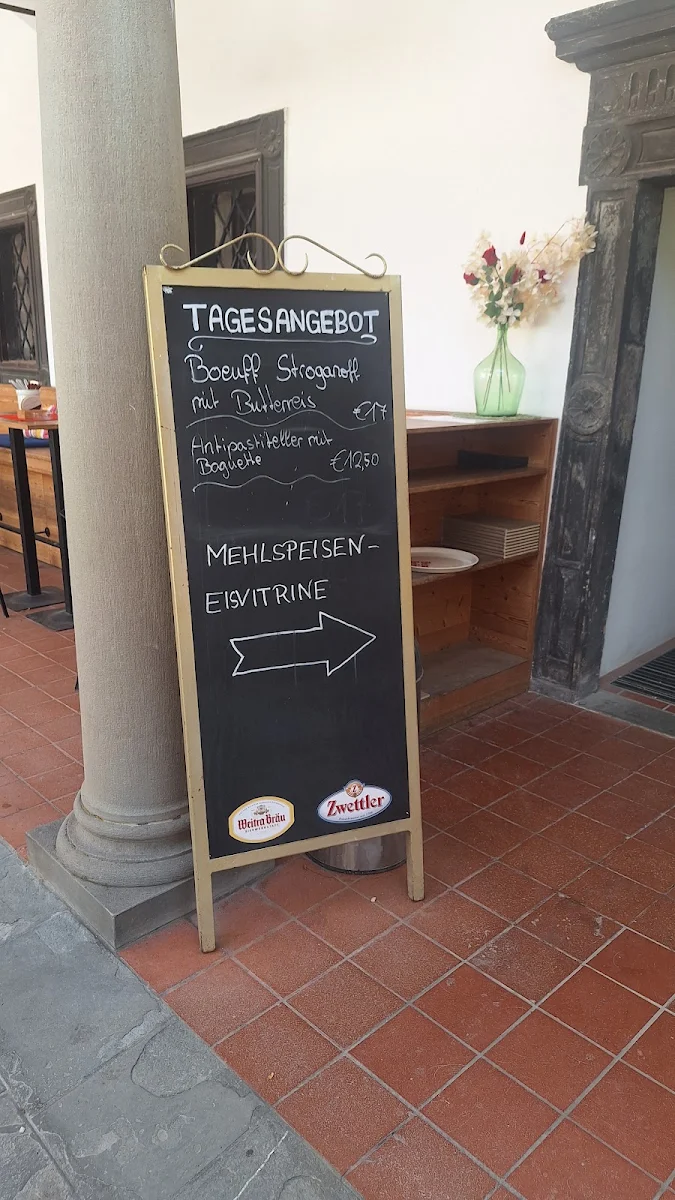 TAGESANGEBOT
Boeuff Stroganoff
mit Butterreis
€17
Antipastiteller mit
Baguette
€12,50
MEHLSPEISEN-
EISVITRINE
Weitra Bräu
Zwettler